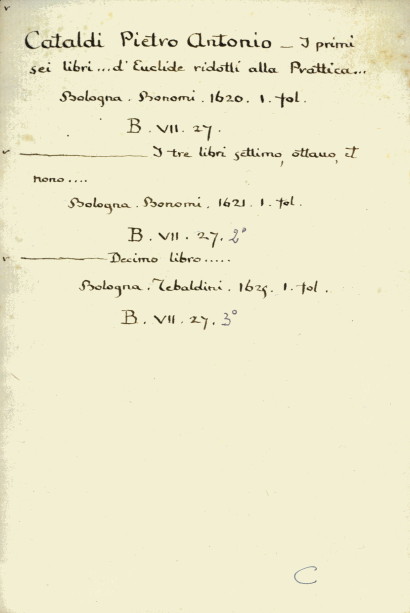 Cataldi Pietro Antonio — I primi
sei libri...d'Euclide ridotti alla Prattica...
Bologna. Bonomi. 1620. 1. fol.
B. VII. 27.
I tre libri settimo, ottauo, et
nono....
Bologna. Bonomi. 1621. 1. fol.
B. VII. 27. 2°
Decimo libro.....
Bologna. Tebaldini. 1625. 1. fol.
B. VII. 27. 3°
C